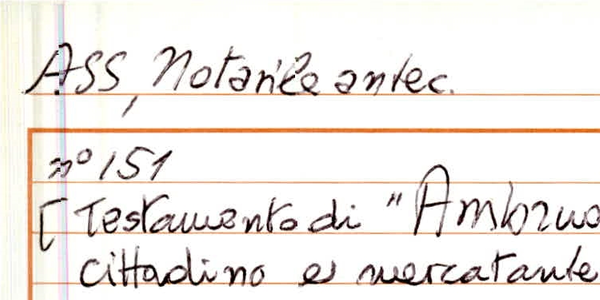 ASS, Notarile antec.
n° 151
[ Testamento di "Ambruo
cittadino e mercatante